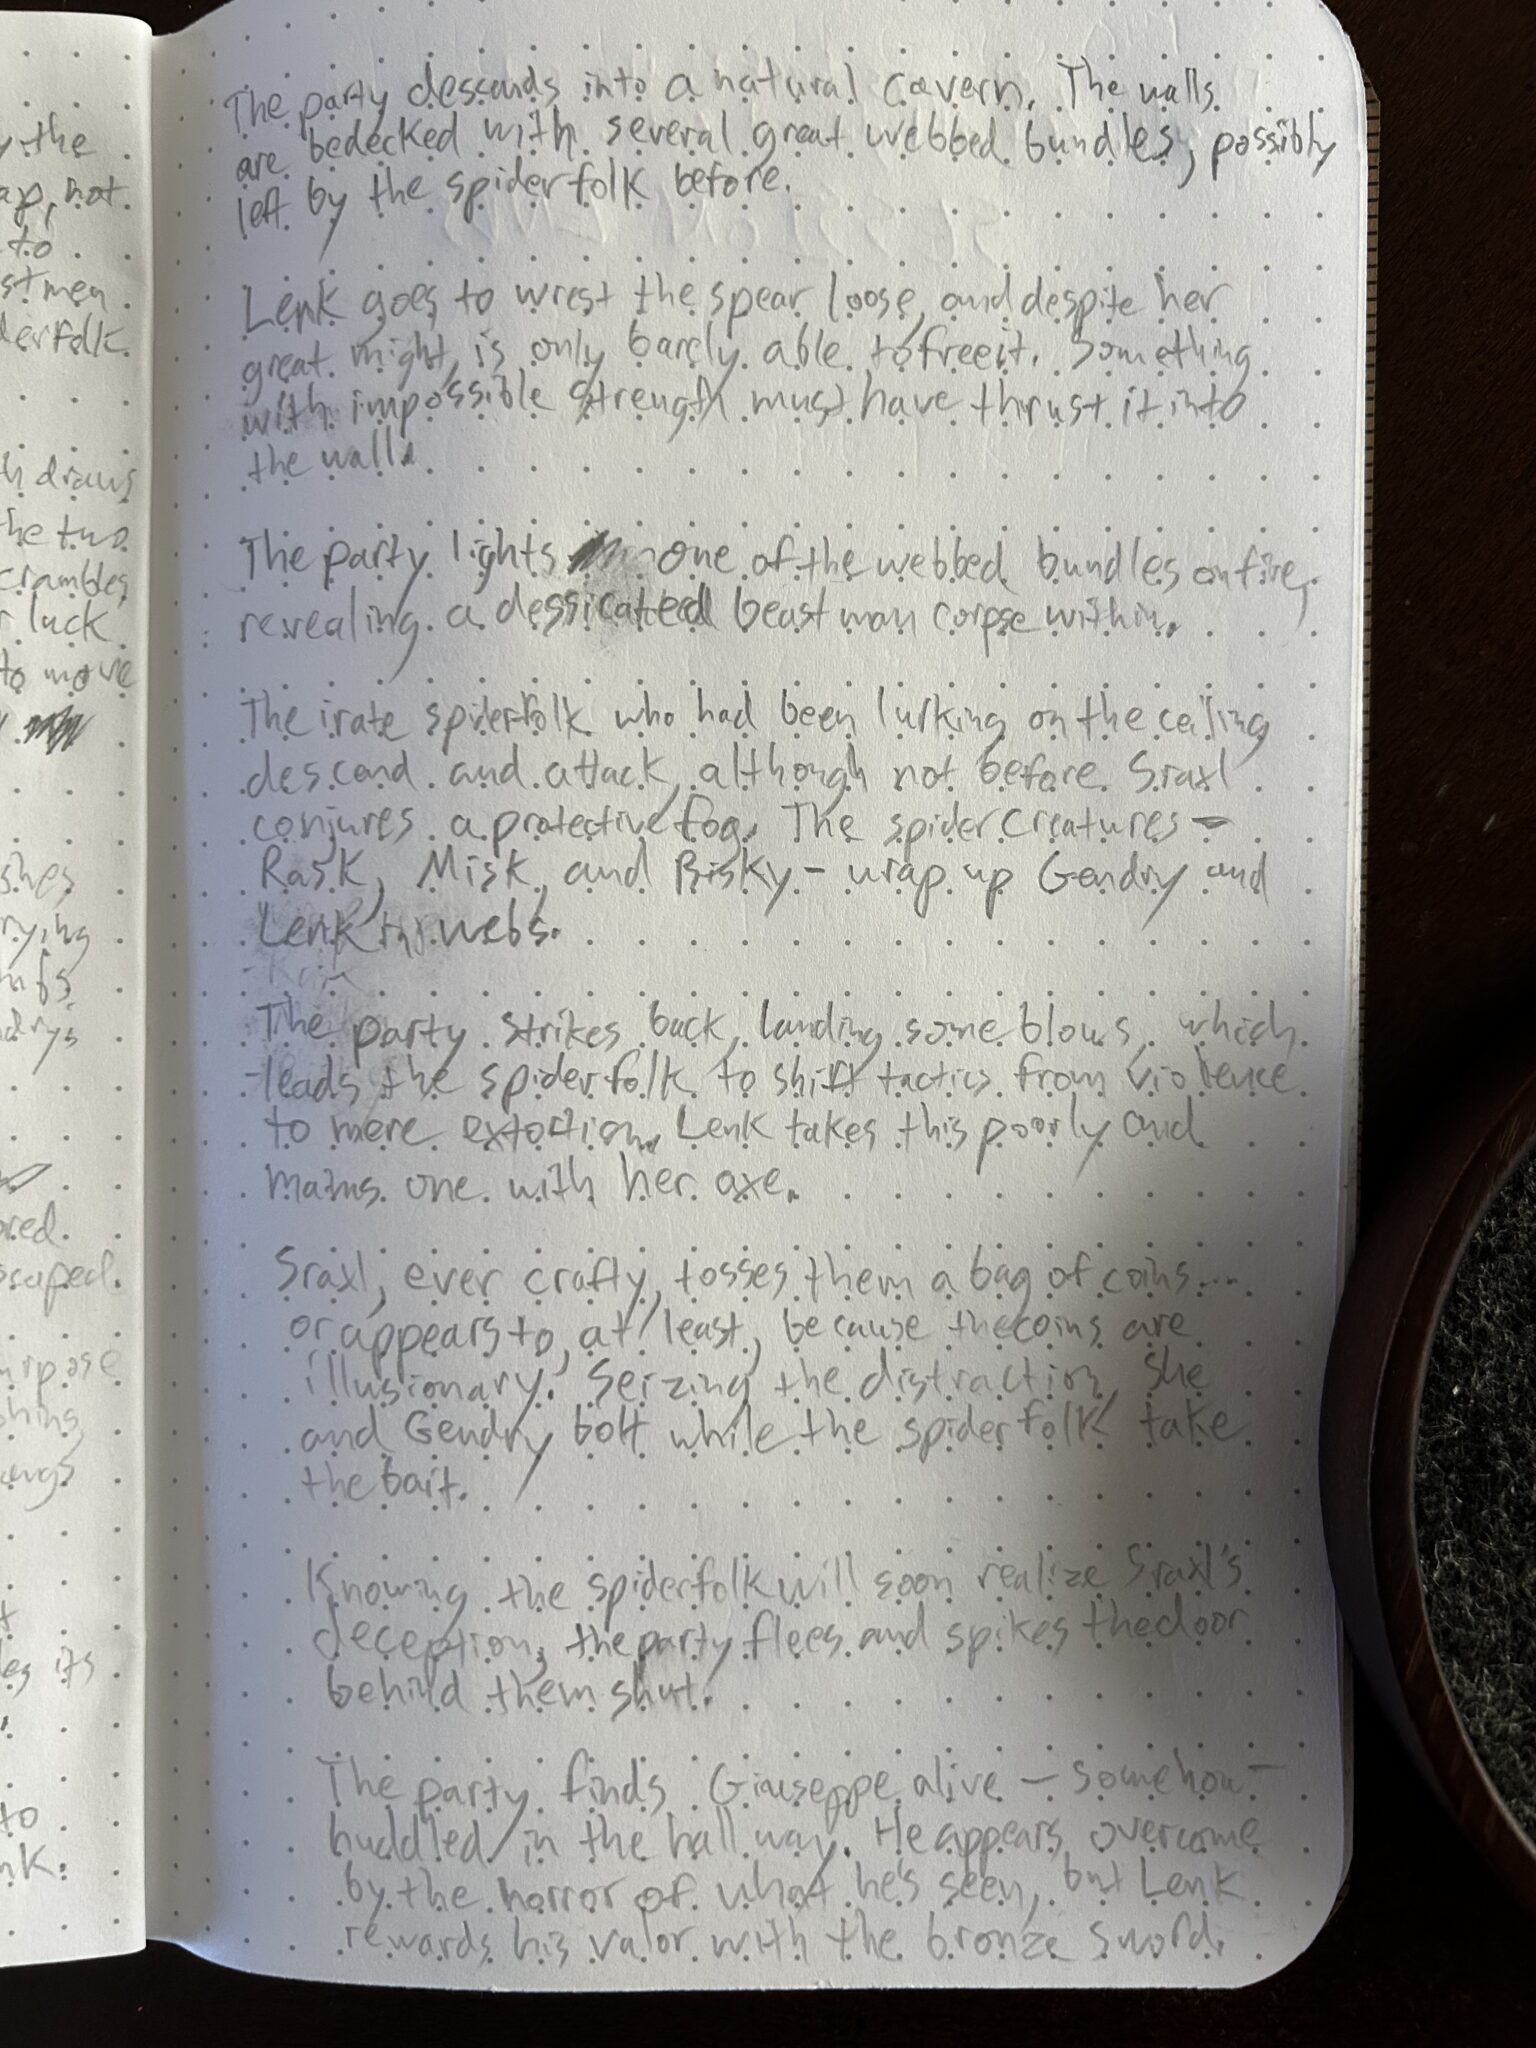 y the
ap, not
to
stmen
derfolk
h draws
he two
crambles
r luck
to move
shes
rying
mbs
drys
ored
scaped.
urpose
shing
ungs
es its
to
nk.
The party dessends into a natural cavern. The walls
are bedecked with several great webbed bundles, possibly
left by the spiderfolk before.
Lenk goes to wrest the spear loose, and despite her
great might, is only barely able to free it. Something
with impossible strength must have thrust it into
the wall.
The party lights one of the webbed bundles on fire,
revealing a dessicated beastman corpse within.
The irate spiderfolk who had been lurking on the ceiling
descend and attack, although not before Sraxl
conjures a protective fog. The spider creatures –
Rask, Misk, and Bisky – wrap up Gendry and
Lenk in webs.
The party strikes back, landing some blows, which
leads the spiderfolk to shift tactics from violence
to mere extortion. Lenk takes this poorly and
maims one with her axe.
Sraxl, ever crafty, tosses them a bag of coins...
or appears to, at least, because the coins are
illusionary. Seizing the distraction, she
and Gendry bolt while the spiderfolk take
the bait.
Knowing the spiderfolk will soon realize Sraxl's
deception, the party flees and spikes the door
behind them shut.
The party finds Giuseppe alive – somehow –
huddled in the hallway. He appears overcome
by the horror of what he's seen, but Lenk
rewards his valor with the bronze sword.